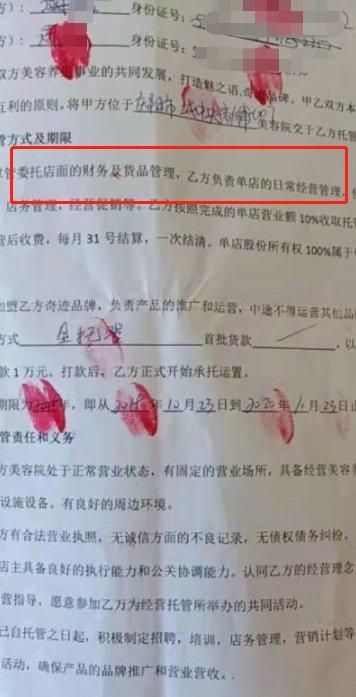 方）： 身份证号：
方）： 身份证号：
双方美容养生事业的共同发展，打造魅之语，奇迹品牌，甲乙双方本
互利的原则，将甲方位于 美容院交于乙方托管
管方式及期限
掌管委托店面的财务及货品管理，乙方负责单店的日常经营管理，
店务管理，经营促销等。乙方按照完成的单店营业额 10%收取托
营后收费，每月 31 号结算，一次结清。单店股份所有权 100%属于
加盟乙方奇迹品牌，负责产品的推广和运营，中途不得运营其他品
方式 全托管 首批货款 ，以
款 1 万元。打款后，乙方正式开始承托运置。
期限为 年，即从 年 10 月 23 日到 2020 年 月 23 日止
管责任和义务
方美容院处于正常营业状态，有固定的营业场所，具备经营美容养
设施设备。有良好的周边环境。
方有合法营业执照，无诚信方面的不良记录，无债权债务纠纷，
店主具备良好的执行能力和公关协调能力。认同乙方的经营理念
营指导，愿意参加乙万为经营托管所举办的共同活动。
已自托管之日起，积极制定招聘，培训，店务管理，营销计划等
活动，确保产品的品牌推广和营业营收。.